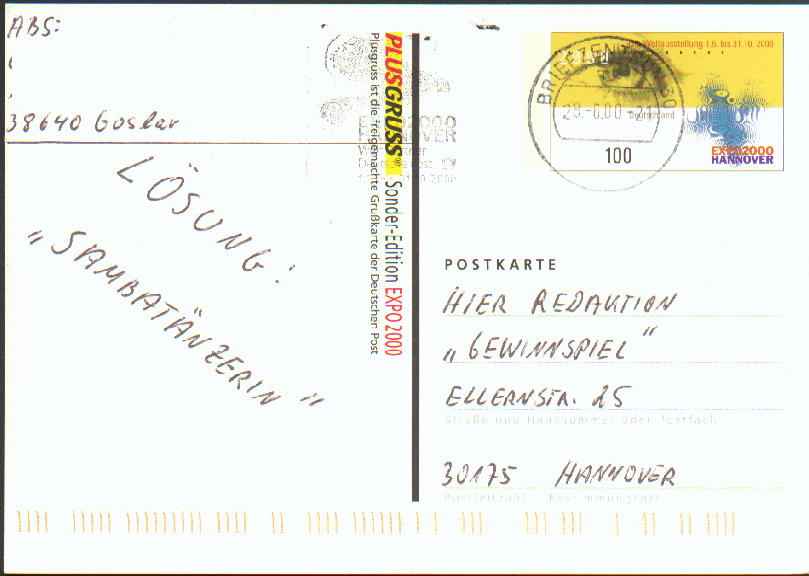 ABS:
38640 Goslar
LÖSUNG:
„SAMBATÄNZERIN"
PLUSGRUSS Sonder-Edition EXPO2000
Plusgruss ist die freigemachte Grußkarte der Deutschen Post
Weltausstellung 1.6. bis 31.10.2000
BRIEFZENTRUM 30
Deutschland
100
EXPO2000
HANNOVER
POSTKARTE
HIER REDAKTION
„GEWINNSPIEL"
ELLERNSTR. 25
Straße und Hausnummer oder Postfach
30175 HANNOVER